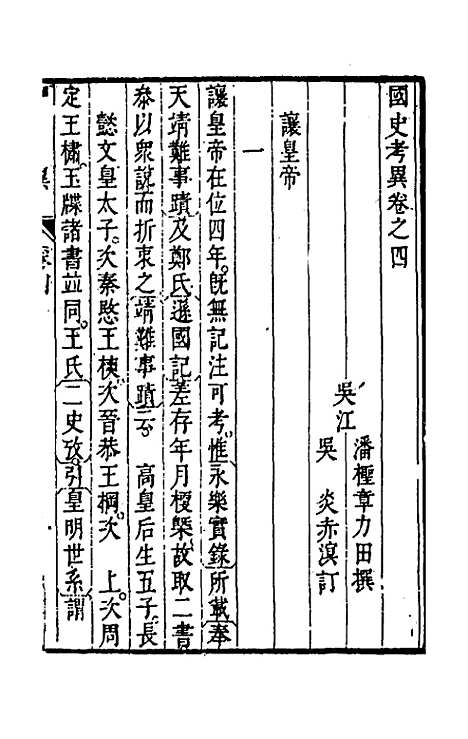 國史考異卷之四
吳江
潘檉章力田撰
吳炎赤溟訂
讓皇帝
一
讓皇帝在位四年。旣無記注可考。惟永樂實錄所載奉
天靖難事蹟及鄭氏遜國記差存年月梗槩。故取二書
叅以衆說而折衷之靖難事蹟云 高皇后生五子。長
懿文皇太子。次秦愍王樉。次晉恭王棡。次 上。次周
定王橚。玉牒諸書並同。王氏二史攷。引皇明世系謂